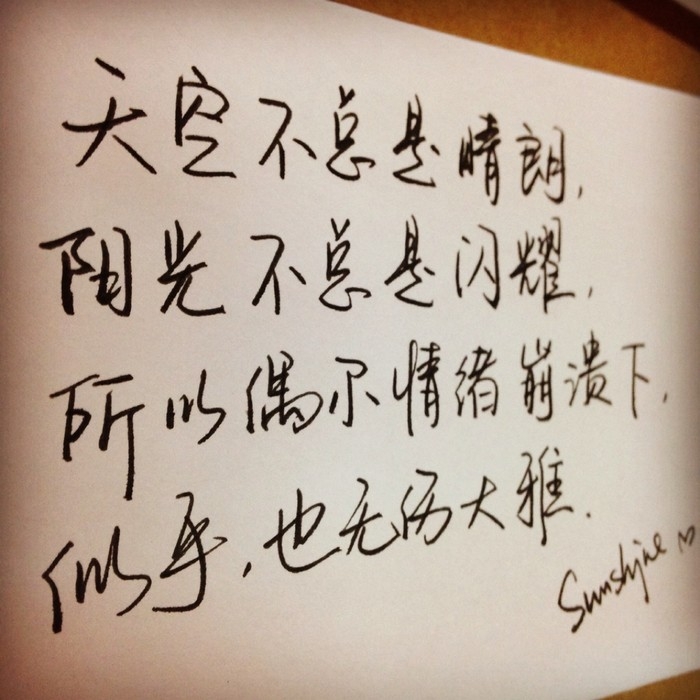 天空不总是晴朗,
阳光不总是闪耀,
所以偶尔情绪崩溃下,
似乎,也无伤大雅.
Sunshine